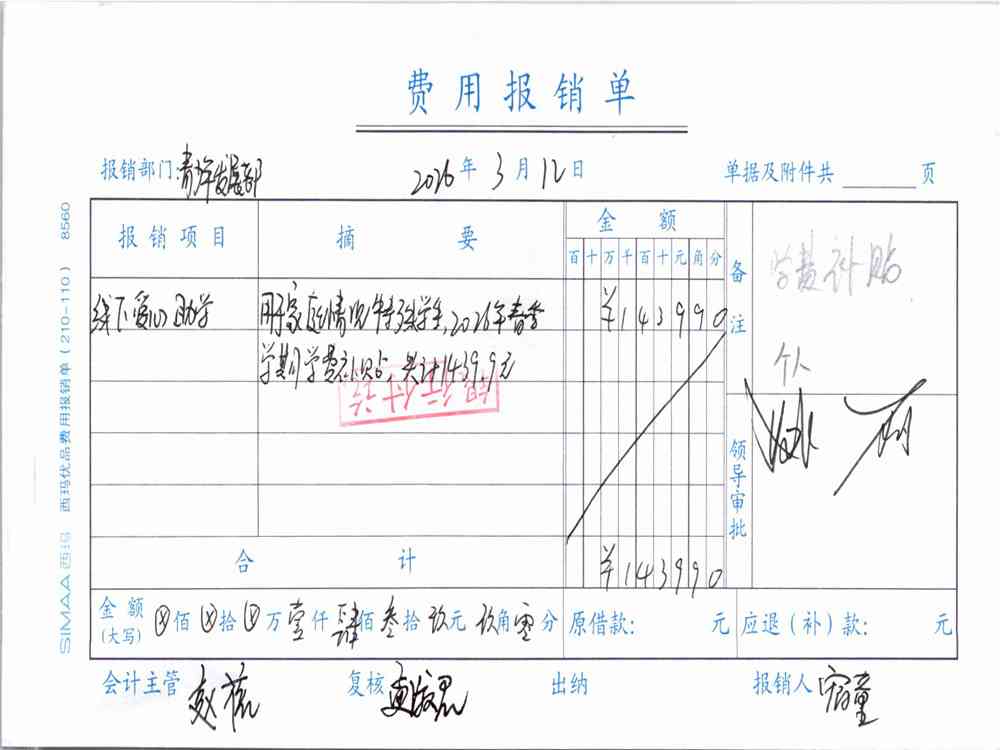 费用报销单
报销部门:青少年发展部 2026年3月12日 单据及附件共 页
报销项目 摘要 金额 备注
百十万千百十元角分
学费补贴
个人
线下爱心助学 用于家庭情况特殊学生,2026年春季 ¥143990
学期学费补贴,共计1439.9元
银行付讫
领导审批
合计 ¥143990
金额(大写) ⓧ佰ⓧ拾ⓧ万壹仟肆佰叁拾玖元玖角零分 原借款: 元 应退(补)款: 元
会计主管 复核 出纳 报销人
SIMAA 西玛 西玛优品费用报销单(210-110) 8560